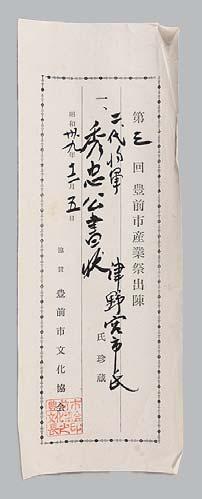 第三回豊前市産業祭出陳
津野宮市長
氏珍蔵
二代将軍
一、秀忠公書状
昭和卅九年十一月五日
協賛 豊前市文化協会